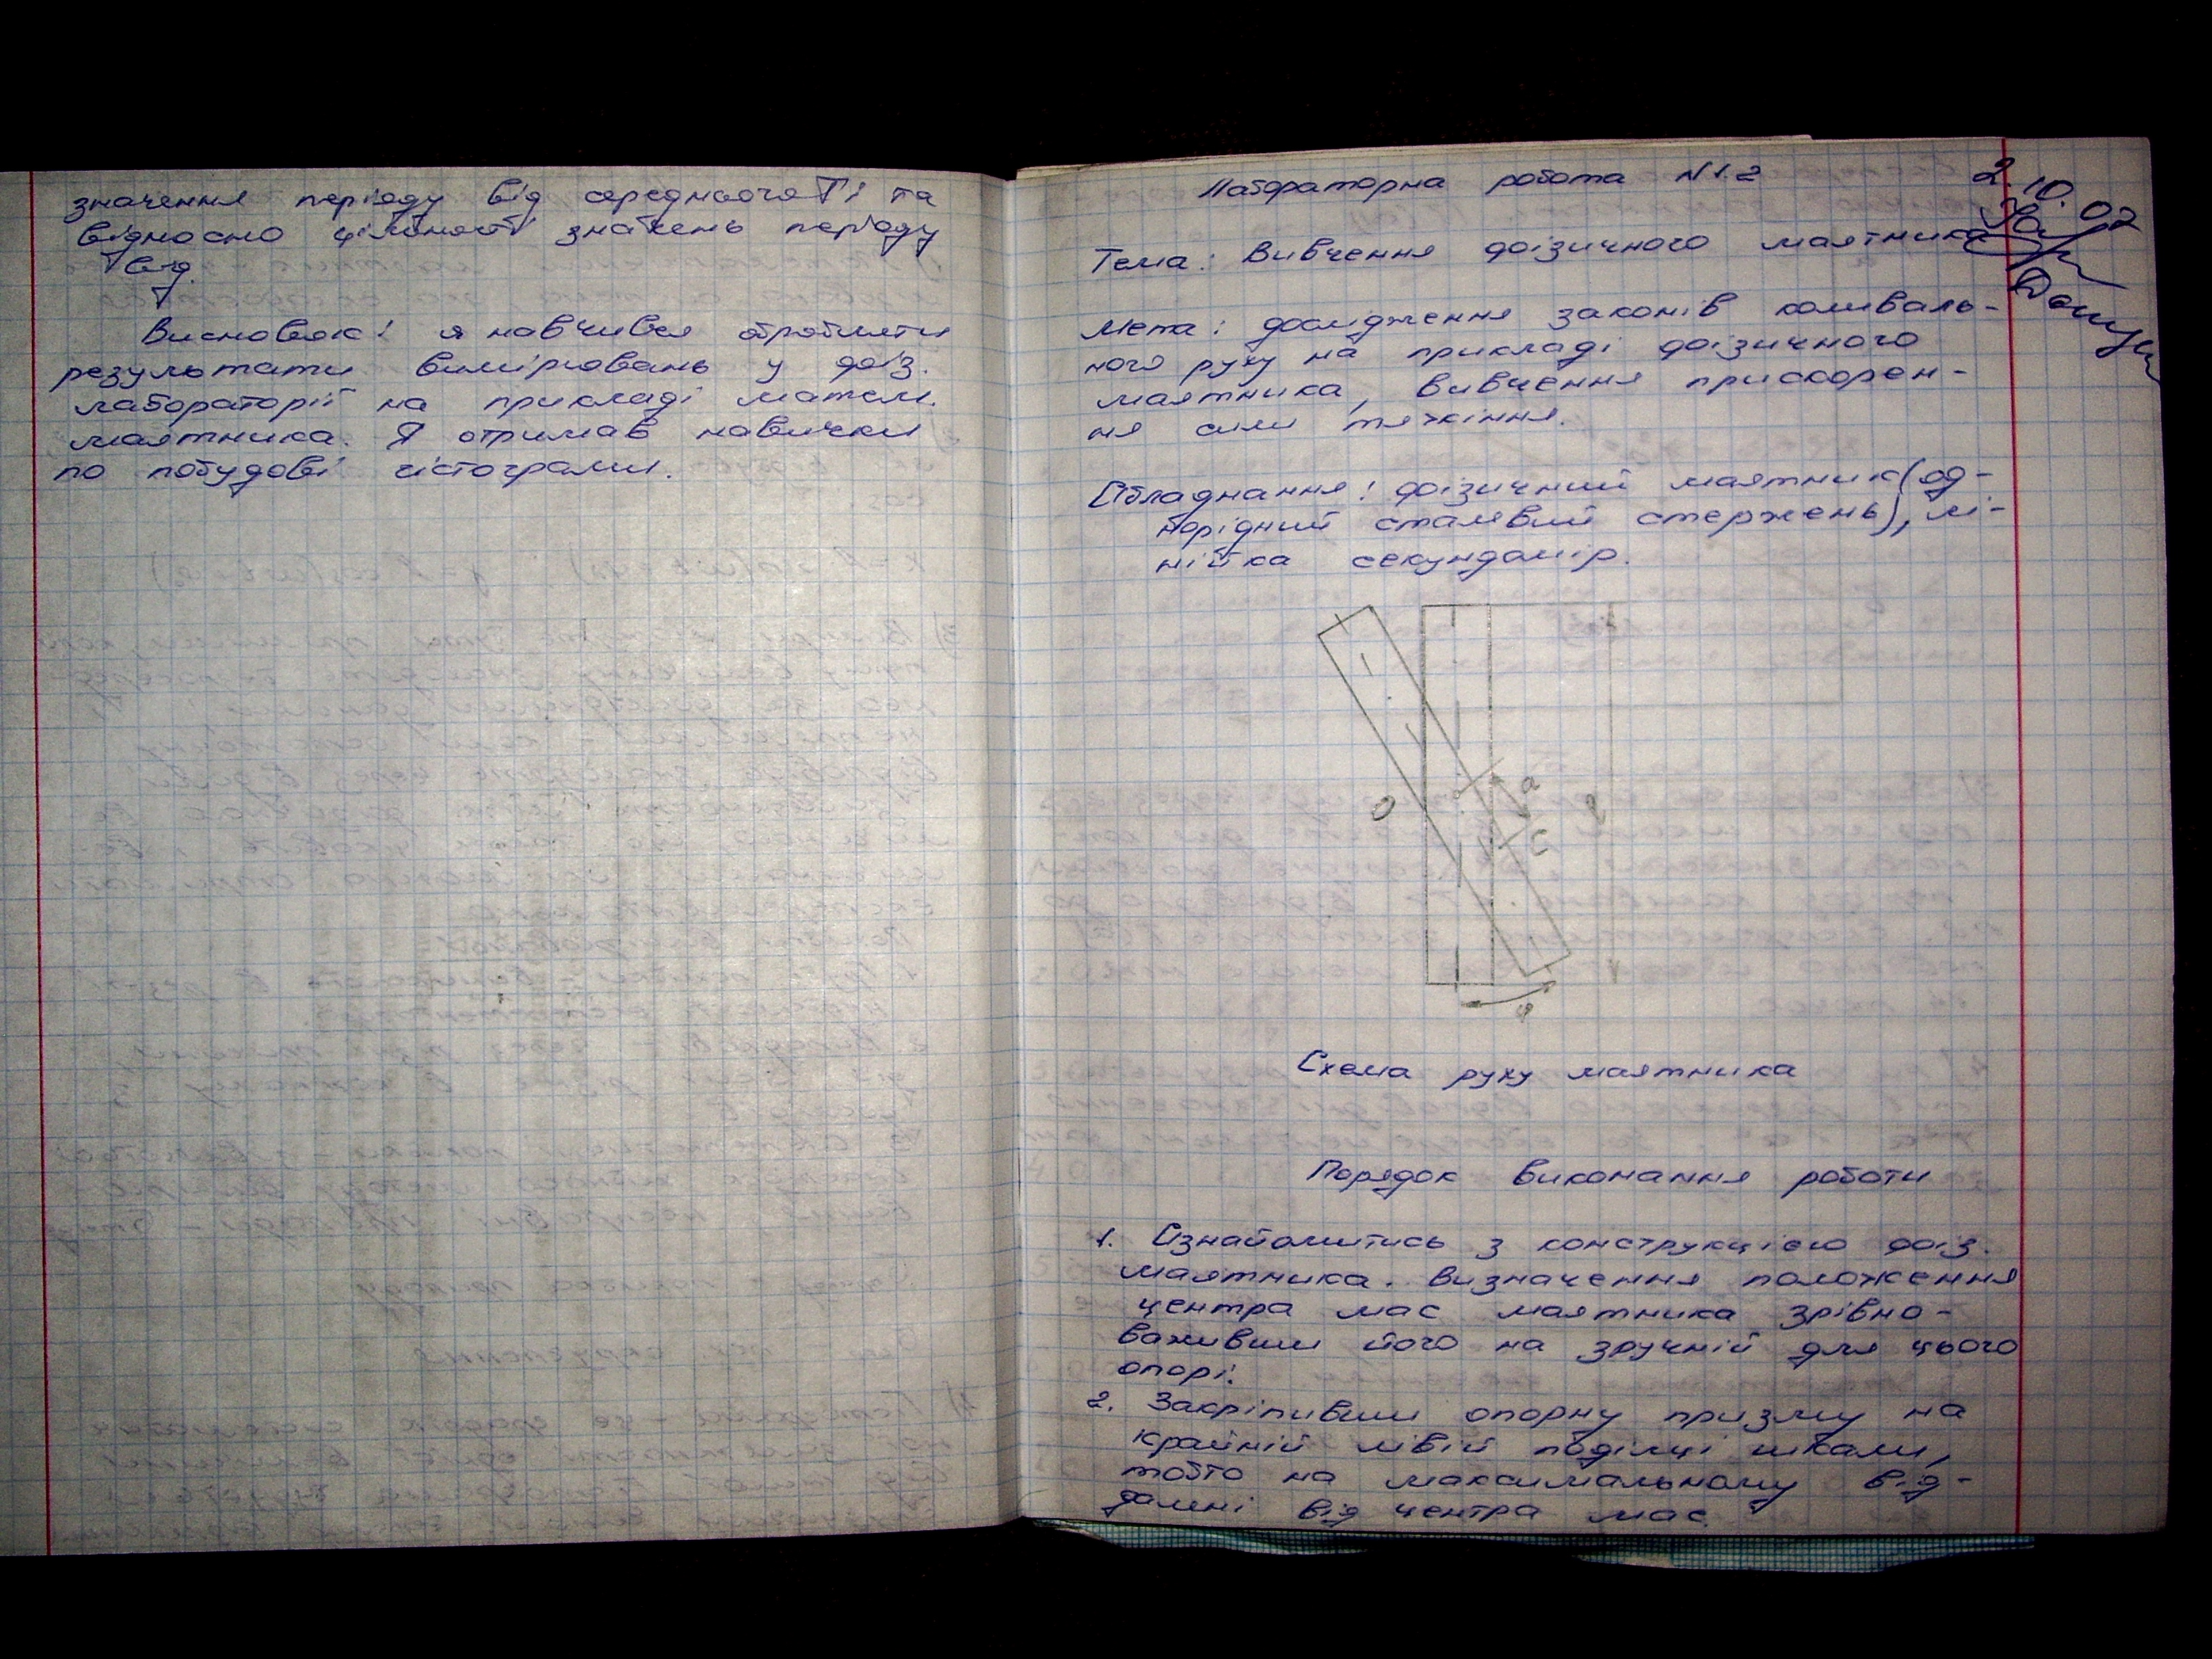 значення періоду від середнього T і та
відносно щільності значень періоду
від.
Висновок: я навчився обробляти
результати вимірювань у фіз.
лабораторії на прикладі матем.
маятника. Я отримав навички
по побудові гістограми.
Лабораторна робота N1.2
2.10.07
Тема: Вивчення фізичного маятника
Допущ
Мета: дослідження законів коливаль-
ного руху на прикладі фізичного
маятника, вивчення прискорен-
ня сили тяжіння.
Обладнання: фізичний маятник (од-
норідний сталевий стержень), лі-
нійка секундомір.
O
a
l
C
φ
Схема руху маятника
Порядок виконання роботи
1. Ознайомитись з конструкцією фіз.
маятника. Визначення положення
центра мас маятника зрівно-
важивши його на зручній для цього
опорі.
2. Закріпивши опорну призму на
крайній лівій поділці шкали,
тобто на максимальному від-
далені від центра мас.